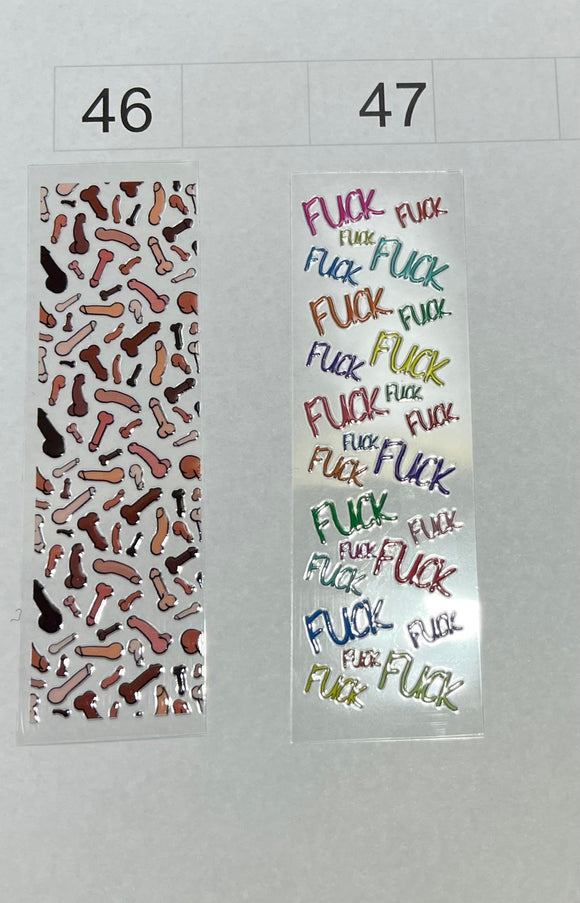 46 47
FUCK FUCK
FUCK
FUCK FUCK
FUCK FUCK
FUCK FUCK
FUCK FUCK
FUCK
FUCK
FUCK FUCK
FUCK FUCK
FUCK FUCK
FUCK
FUCK FUCK
FUCK
FUCK FUCK